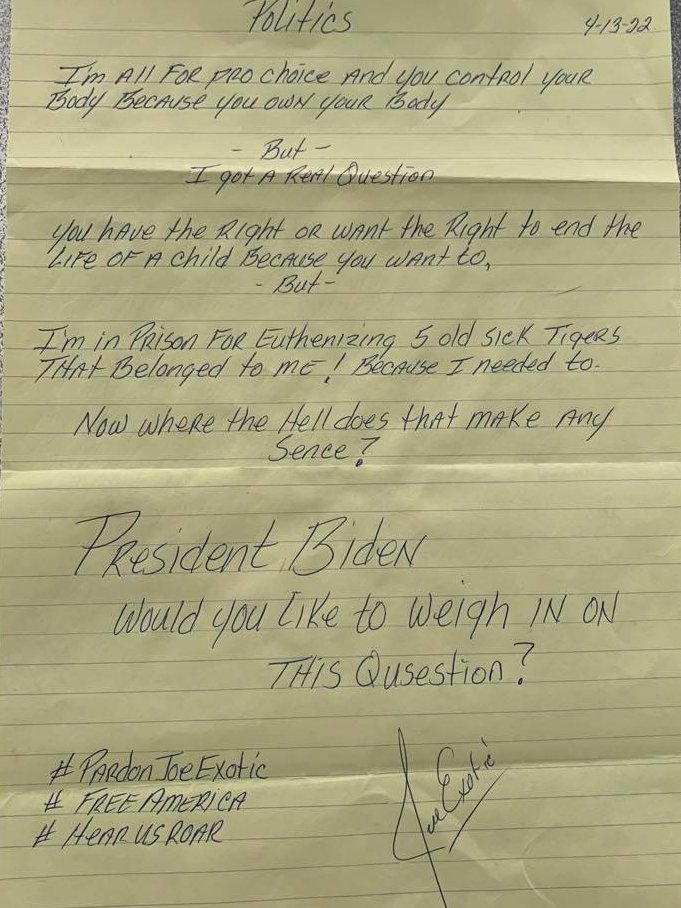 Politics
4-13-22
I'm All For pro choice And you control your
Body Because you own your Body
- But -
I got A Real Question
you have the Right or want the Right to end the
Life of a child Because you want to,
- But -
I'm in Prison For Euthenizing 5 old sick Tigers
THAt Belonged to me! Because I needed to.
Now where the Hell does that make Any
Sence?
President Biden
Would you like to weigh in on
THis Qusestion?
# PardonJoeExotic
# FREE AMERICA
# HEAR US ROAR
Joe Exotic